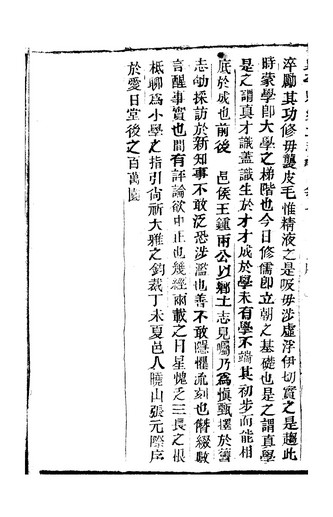 淬勵其功修毋襲皮毛惟精液之是吸毋涉虛浮伊切實之是趨此
時蒙學卽大學之梯階也今日修儒卽立朝之基礎也是之謂眞學
是之謂眞才識蓋識生於才才成於學未有學不端其初步而能相
底於成也前後 邑侯王鍾兩公以鄉土志見囑乃爲愼甄擇於舊
志劬採訪於新知事不敢泛恐涉濫也善不敢隱懼流刻也僃綴數
言醒事實也間有評論欲中正也幾經兩載之日星愧乏三長之根
柢聊爲小學之指引尙祈大雅之鈞裁丁未夏邑人曉山張元際序
於愛日堂後之百萬園